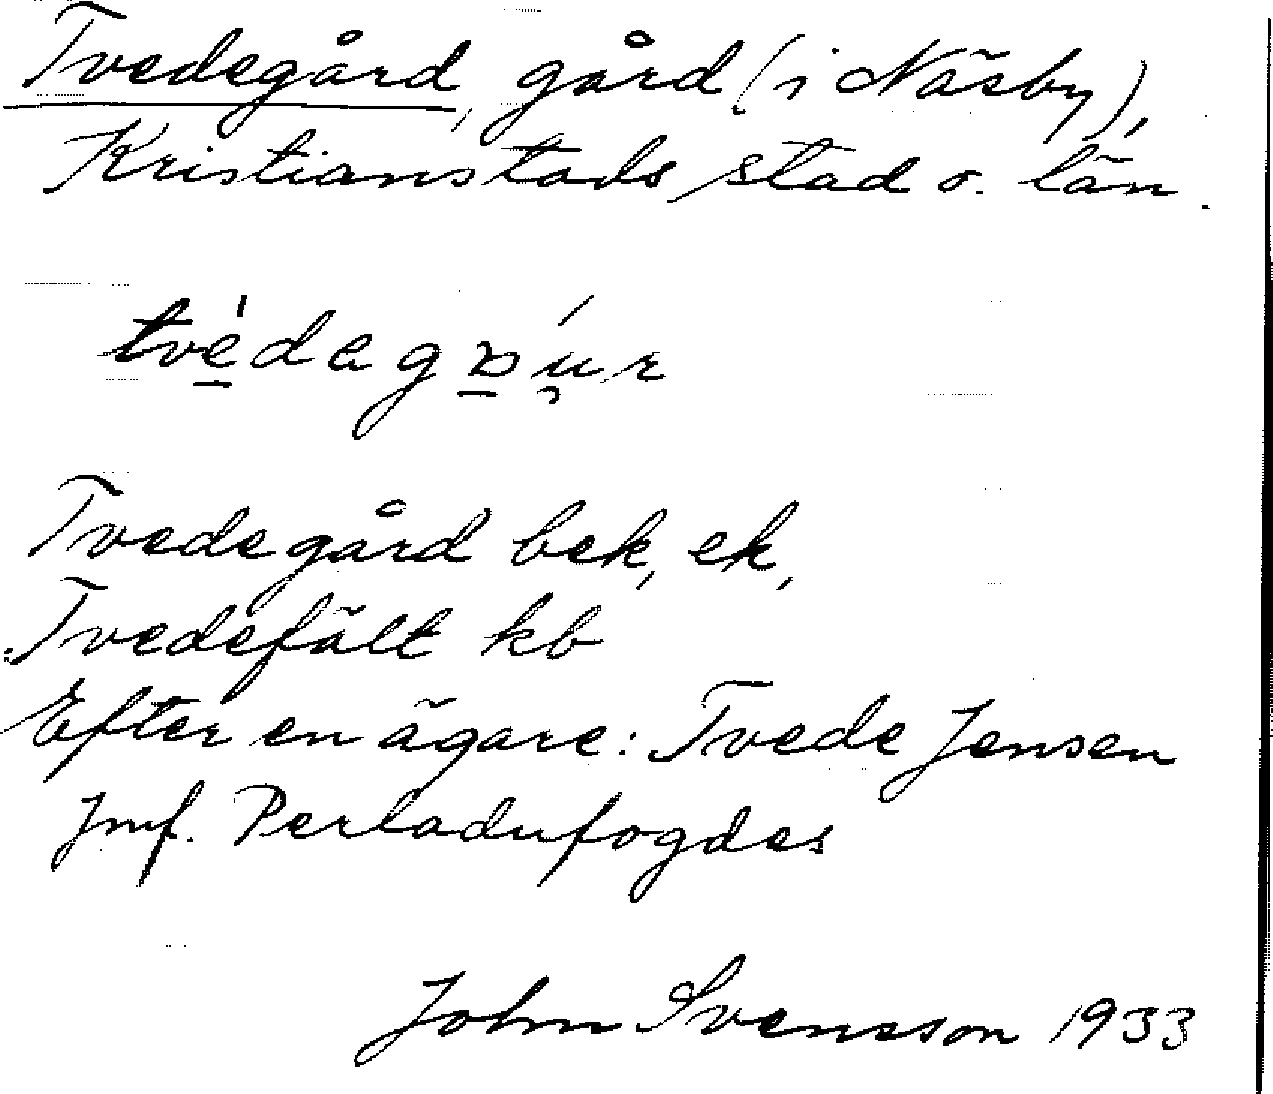 Tvedegård, gård (i Näsby),
Kristianstads stad o. län.
Tvedegård bek, ek,
Tvedefält kb
Efter en ägare: Tvede Jensen
Jmf. Perladufogdes
John Svensson 1933